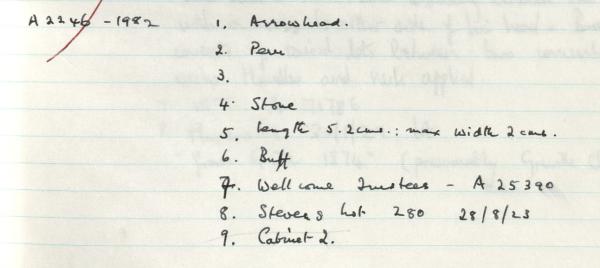 A 2246 - 1982 1. Arrowhead.
2. Peru
3.
4. Stone
5. Length 5.2 cms. : max width 2 cms.
6. Buff
7. Wellcome Trustees - A 25390
8. Stevens lot 280 28/8/23
9. Cabinet 2.